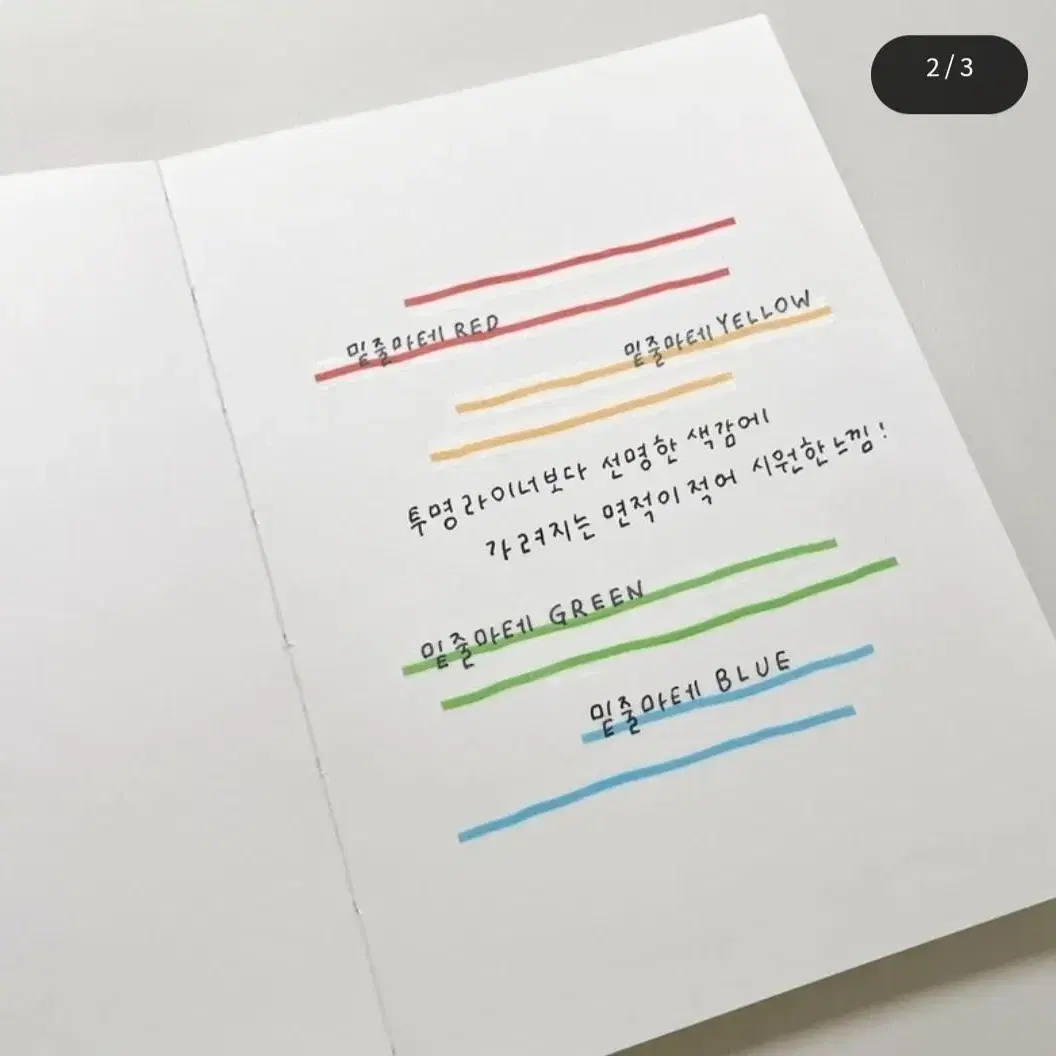 2/3
밑줄마테 RED
밑줄마테 YELLOW
투명라이너보다 선명한 색감에
가려지는 면적이 적어 시원한 느낌!
밑줄마테 GREEN
밑줄마테 BLUE